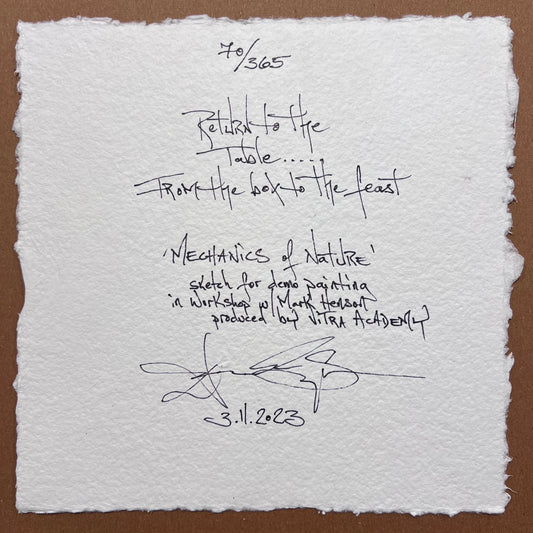 70/365
Return to the
Table.....
From the box to the feast
'Mechanics of Nature'
sketch for demo painting
in workshop w/ Mark Henson
produced by Vitra Academy
3.11.2023